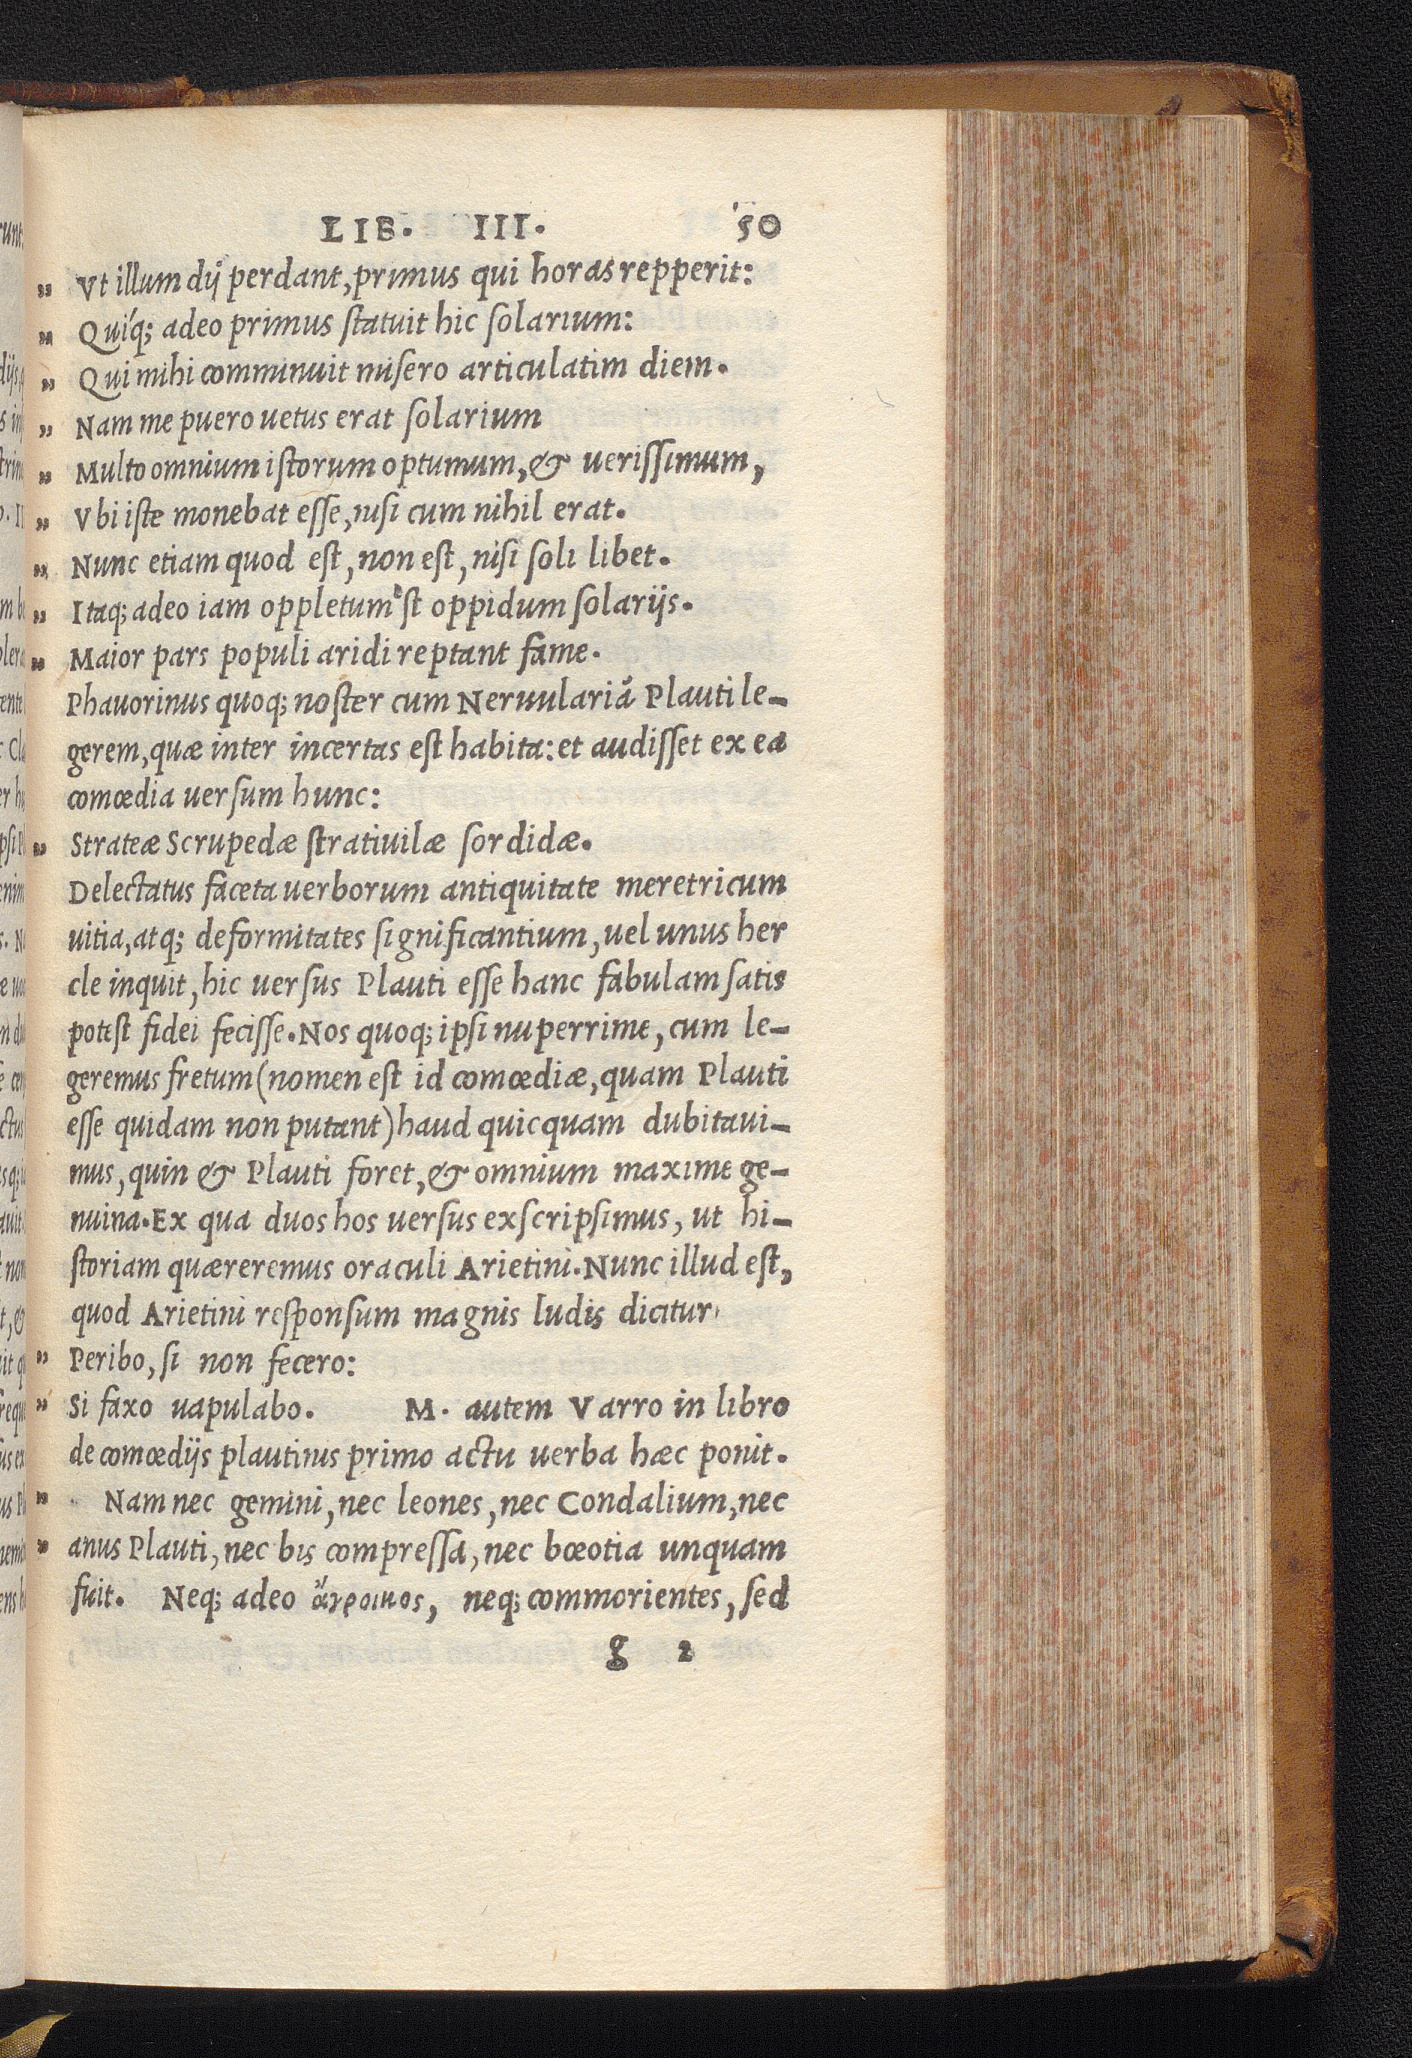 LIB. III. 50
„ Vt illum dij perdant, primus qui horas repperit:
„ Quíq; adeo primus ſtatuit hic ſolarium:
„ Qui mihi comminuit miſero articulatim diem.
„ Nam me puero uetus erat ſolarium
„ Multo omnium iſtorum optumum, & ueriſſimum,
„ Vbi iſte monebat eſſe, niſi cum nihil erat.
„ Nunc etiam quod eſt, non eſt, niſi ſoli libet.
„ Itaq; adeo iam oppletum'ſt oppidum ſolarijs.
„ Maior pars populi aridi reptant fame.
Phauorinus quoq; noſter cum Neruulariã Plauti le-
gerem, quæ inter incertas eſt habita: et audiſſet ex ea
comœdia uerſum hunc:
„ Strateæ Scrupedæ ſtratiuilæ ſordidæ.
Delectatus faceta uerborum antiquitate meretricum
uitia, atq; deformitates ſignificantium, uel unus her
cle inquit, hic uerſus Plauti eſſe hanc fabulam ſatis
poteſt fidei feciſſe. Nos quoq; ipſi nuperrime, cum le-
geremus fretum (nomen eſt id comœdiæ, quam Plauti
eſſe quidam non putant) haud quicquam dubitaui-
mus, quin & Plauti foret, & omnium maxime ge-
nuina. Ex qua duos hos uerſus exſcripſimus, ut hi-
ſtoriam quæreremus oraculi Arietini. Nunc illud eſt,
quod Arietini reſponſum magnis ludis dicitur
„ Peribo, ſi non fecero:
„ Si faxo uapulabo. M. autem Varro in libro
de comœdijs plautinis primo actu uerba hæc ponit.
„ Nam nec gemini, nec leones, nec Condalium, nec
„ anus Plauti, nec bis compreſſa, nec bœotia unquam
fuit. Neq; adeo ἄγροικος, neq; commorientes, ſed
g 2